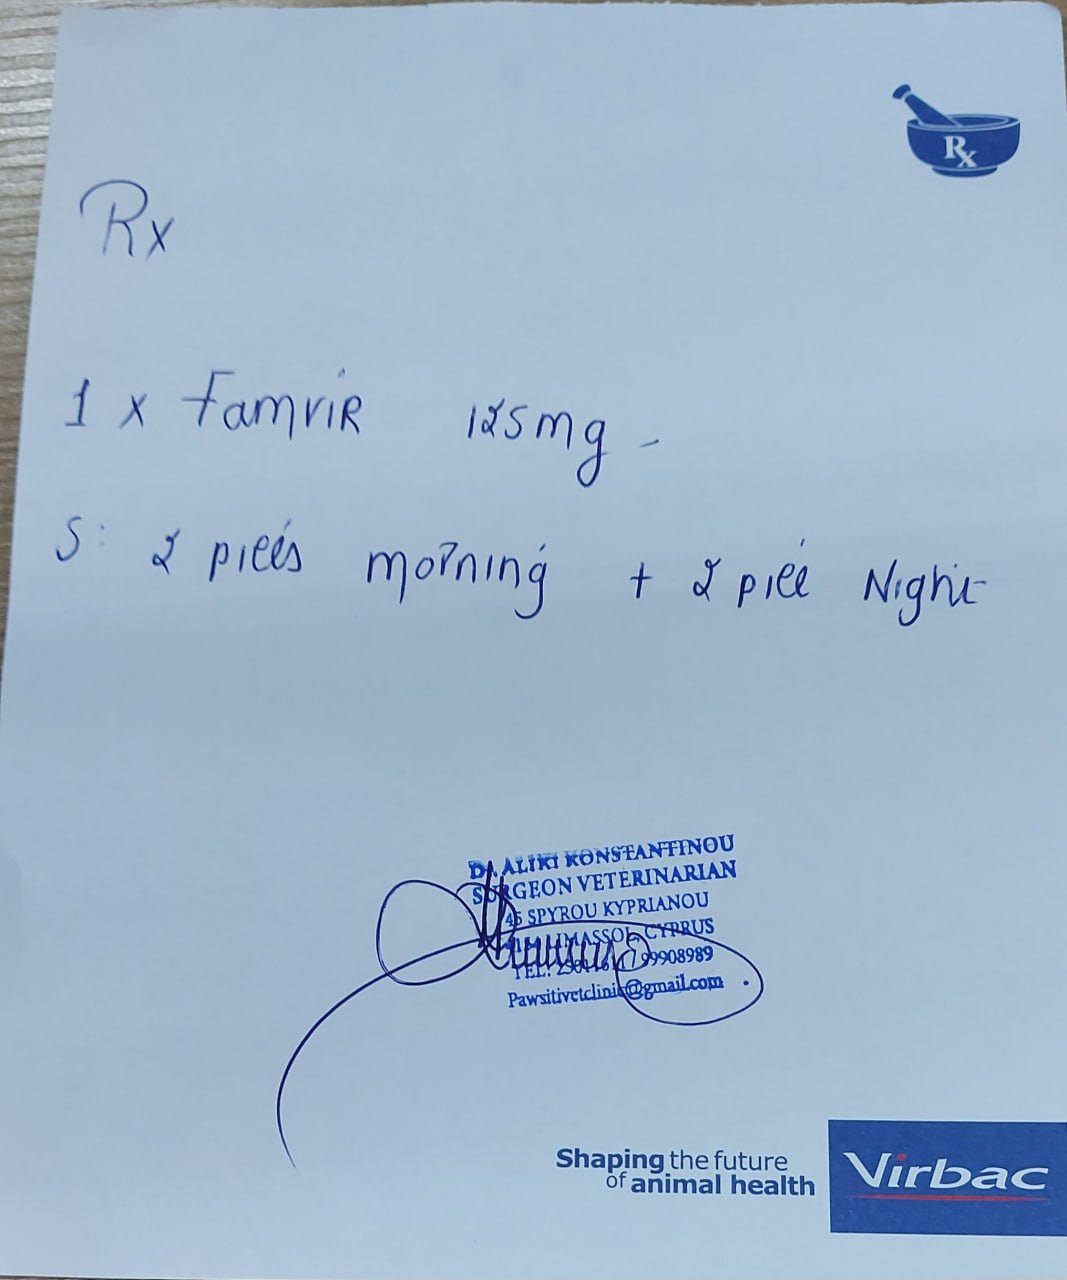 Rx
Rx
1 x Famvir 125mg -
S: 2 pills morning + 2 pill Night
DR. ALIKI KONSTANTINOU
SURGEON VETERINARIAN
45 SPYROU KYPRIANOU
LIMASSOL, CYPRUS
TEL: 99908989
Pawsitivetclinic@gmail.com
Shaping the future
of animal health
Virbac